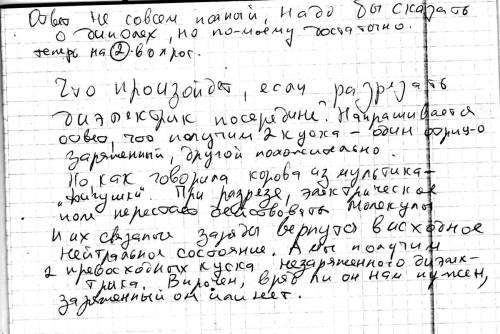 Ответ не совсем полный, надо бы сказать
о диполях, но по-моему достаточно.
теперь на 2 вопрос.
Что произойдет, если разрезать
диэлектрик посередине? Напрашивается
ответ, что получим 2 куска – один отриц-о
заряженный, другой положительно.
Но как говорила корова из мультика –
"фигушки". При разрезе, электрическое
поле перестает действовать молекулы
и их связаные заряды вернутся в исходное
нейтральное состояние. А мы получим
2 превосходных куска незаряженного диэлек-
трика. Впрочем, вряд ли он нам нужен,
заряженный он или нет.